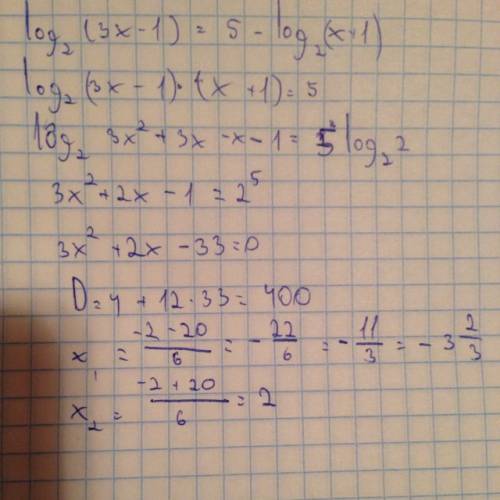 log₂ (3x-1) = 5 - log₂(x+1)
log₂ (3x - 1)·(x + 1) = 5
log₂ 3x² + 3x - x - 1 = 5 log₂ 2
3x² + 2x - 1 = 2⁵
3x² + 2x - 33 = 0
D = 4 + 12·33 = 400
x₁ = (-2 - 20)/6 = - 22/6 = - 11/3 = - 3 2/3
x₂ = (-2 + 20)/6 = 2